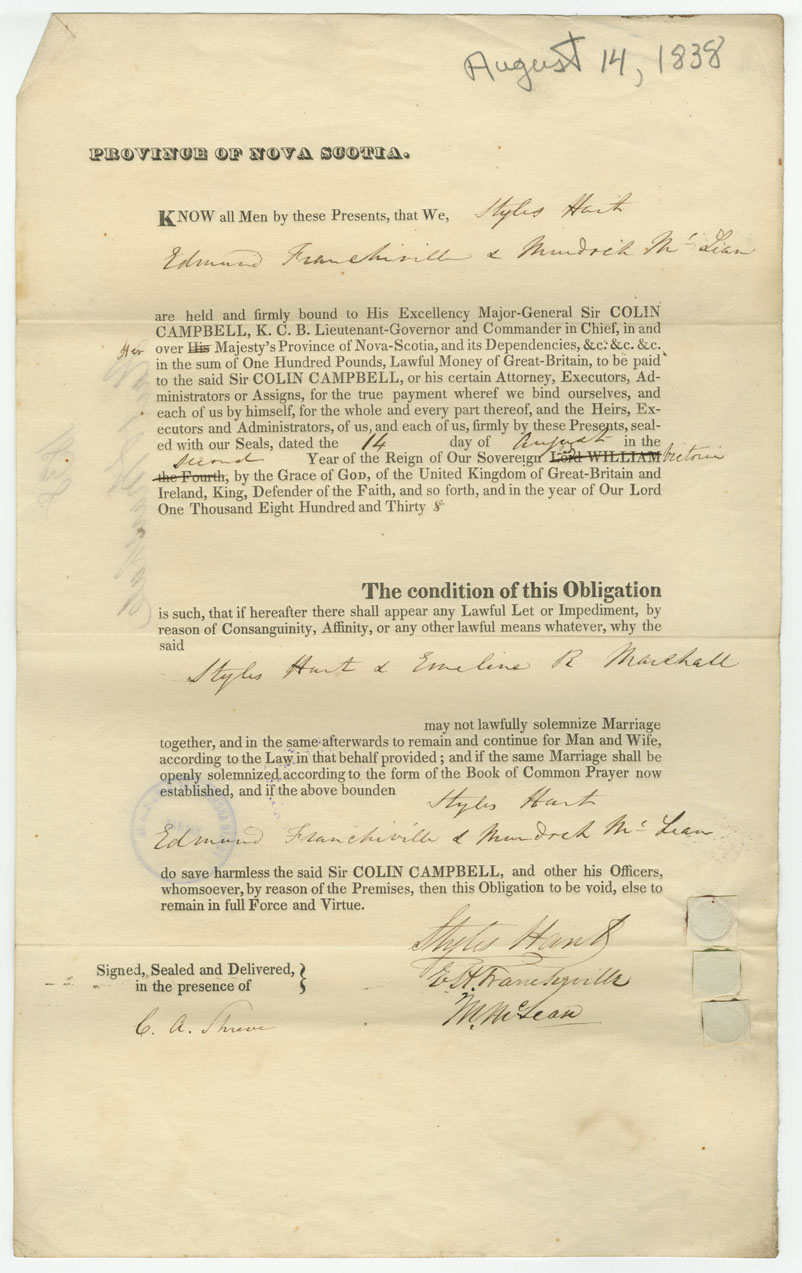 August 14, 1838
PROVINCE OF NOVA SCOTIA.
KNOW all Men by these Presents, that We, Styles Hart
Edmund Franchiville & Murdoch Mc Lean
are held and firmly bound to His Excellency Major-General Sir COLIN
CAMPBELL, K. C. B. Lieutenant-Governor and Commander in Chief, in and
Her over His Majesty's Province of Nova-Scotia, and its Dependencies, &c. &c. &c.
in the sum of One Hundred Pounds, Lawful Money of Great-Britain, to be paid
to the said Sir COLIN CAMPBELL, or his certain Attorney, Executors, Ad-
ministrators or Assigns, for the true payment wheref we bind ourselves, and
each of us by himself, for the whole and every part thereof, and the Heirs, Ex-
ecutors and Administrators, of us, and each of us, firmly by these Presents, seal-
ed with our Seals, dated the 14 day of August in the
second Year of the Reign of Our Sovereign Lord WILLIAM Victoria
the Fourth, by the Grace of GOD, of the United Kingdom of Great-Britain and
Ireland, King, Defender of the Faith, and so forth, and in the year of Our Lord
One Thousand Eight Hundred and Thirty 8
The condition of this Obligation
is such, that if hereafter there shall appear any Lawful Let or Impediment, by
reason of Consanguinity, Affinity, or any other lawful means whatever, why the
said
Styles Hart & Emeline R Marshall
may not lawfully solemnize Marriage
together, and in the same afterwards to remain and continue for Man and Wife,
according to the Law in that behalf provided; and if the same Marriage shall be
openly solemnized according to the form of the Book of Common Prayer now
established, and if the above bounden Styles Hart
Edmund Franchiville & Murdoch Mc Lean
do save harmless the said Sir COLIN CAMPBELL, and other his Officers,
whomsoever, by reason of the Premises, then this Obligation to be void, else to
remain in full Force and Virtue.
Styles Hart
Signed, Sealed and Delivered,
in the presence of
E H. Francheville
M. McLean
C. A. Shreve